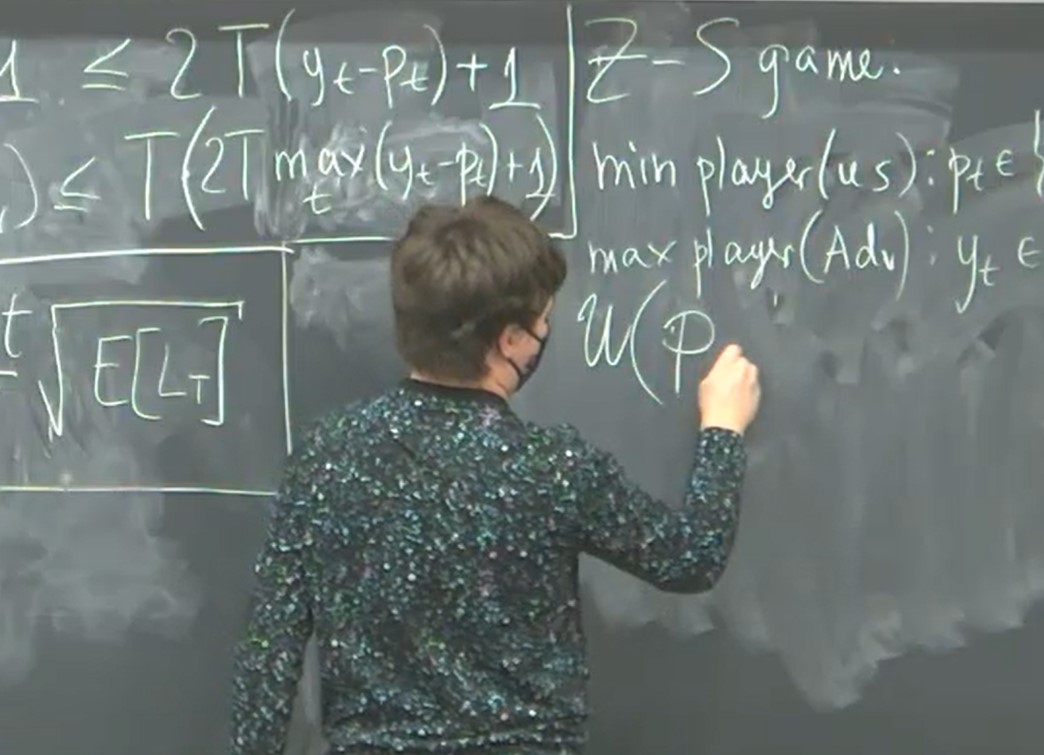 1 ≤ 2T(y_t-p_t)+1
) ≤ T(2T max_t(y_t-p_t)+1)
t √E[L_T]
Z-S game.
min player(us): p_t ∈ {
max player(Adv): y_t ∈
U(p